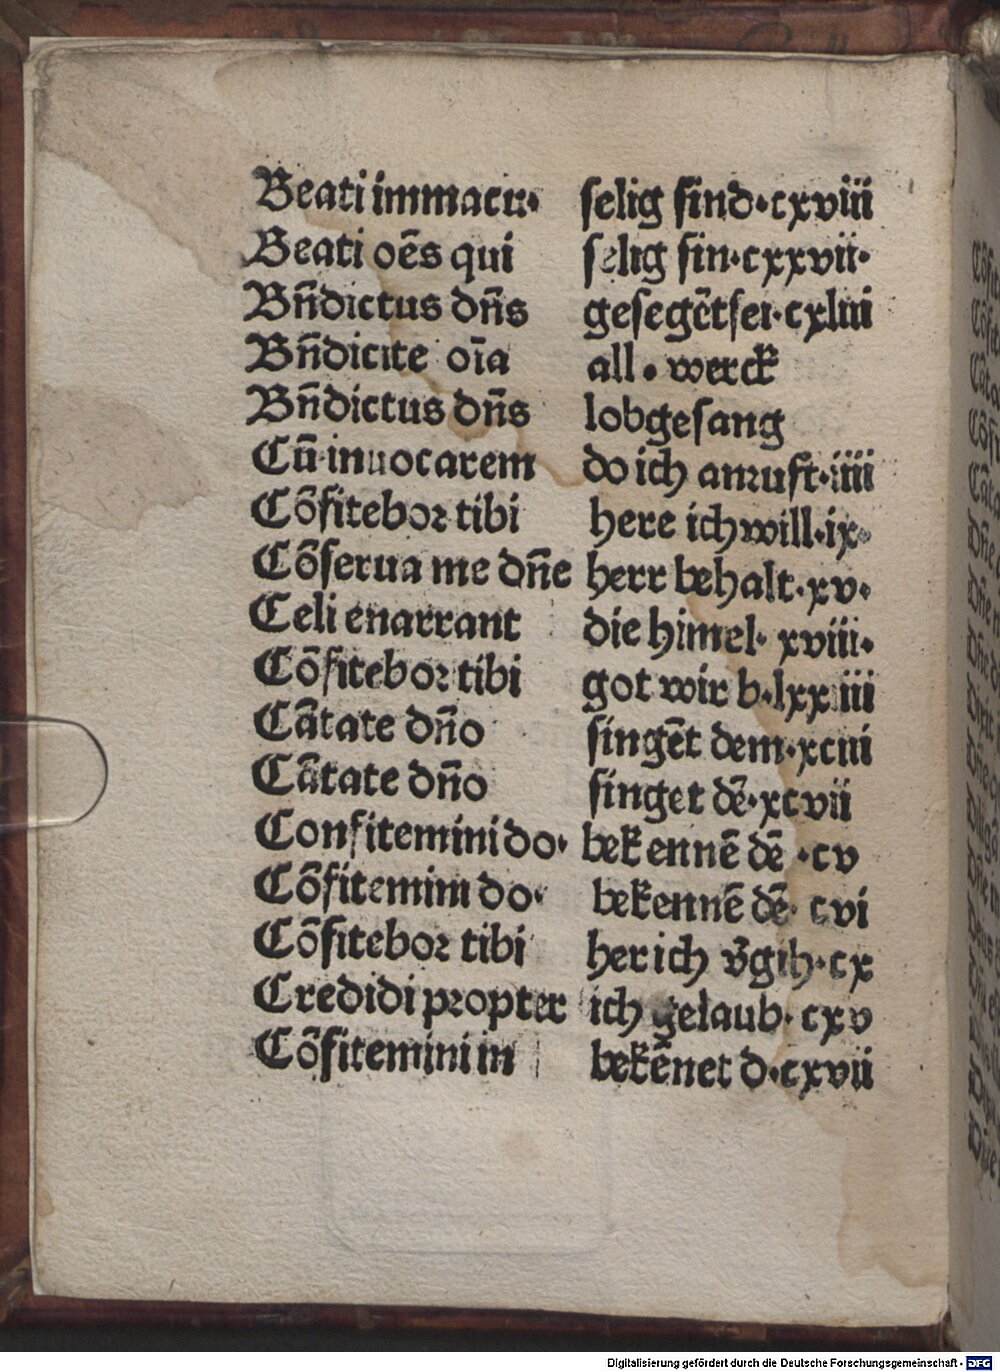 Beati immacu· selig sind·cxviii
Beati oēs qui selig sin·cxxvii·
Bn̄dictus dn̄s gesegēt sei·cxliii
Bn̄dicite oīa all· werck
Bn̄dictus dn̄s lobgesang
Cū inuocarem do ich anruft·iiii
Cōfitebor tibi here ich will·ix·
Cōserua me dn̄e herr behalt·xv·
Celi enarrant die himel·xviii·
Cōfitebor tibi got wir b·lxxiiii
Cātate dn̄o singēt dem·xciii
Cātate dn̄o singet dē·xcvii
Confitemini do· bekennē dē·cv
Cōfitemini do· bekennē dē·cvi
Cōfitebor tibi her ich v̄gih·cx
Credidi propter ich gelaub·cxv
Cōfitemini in bekēnet d·cxvii
Digitalisierung gefördert durch die Deutsche Forschungsgemeinschaft - DFG